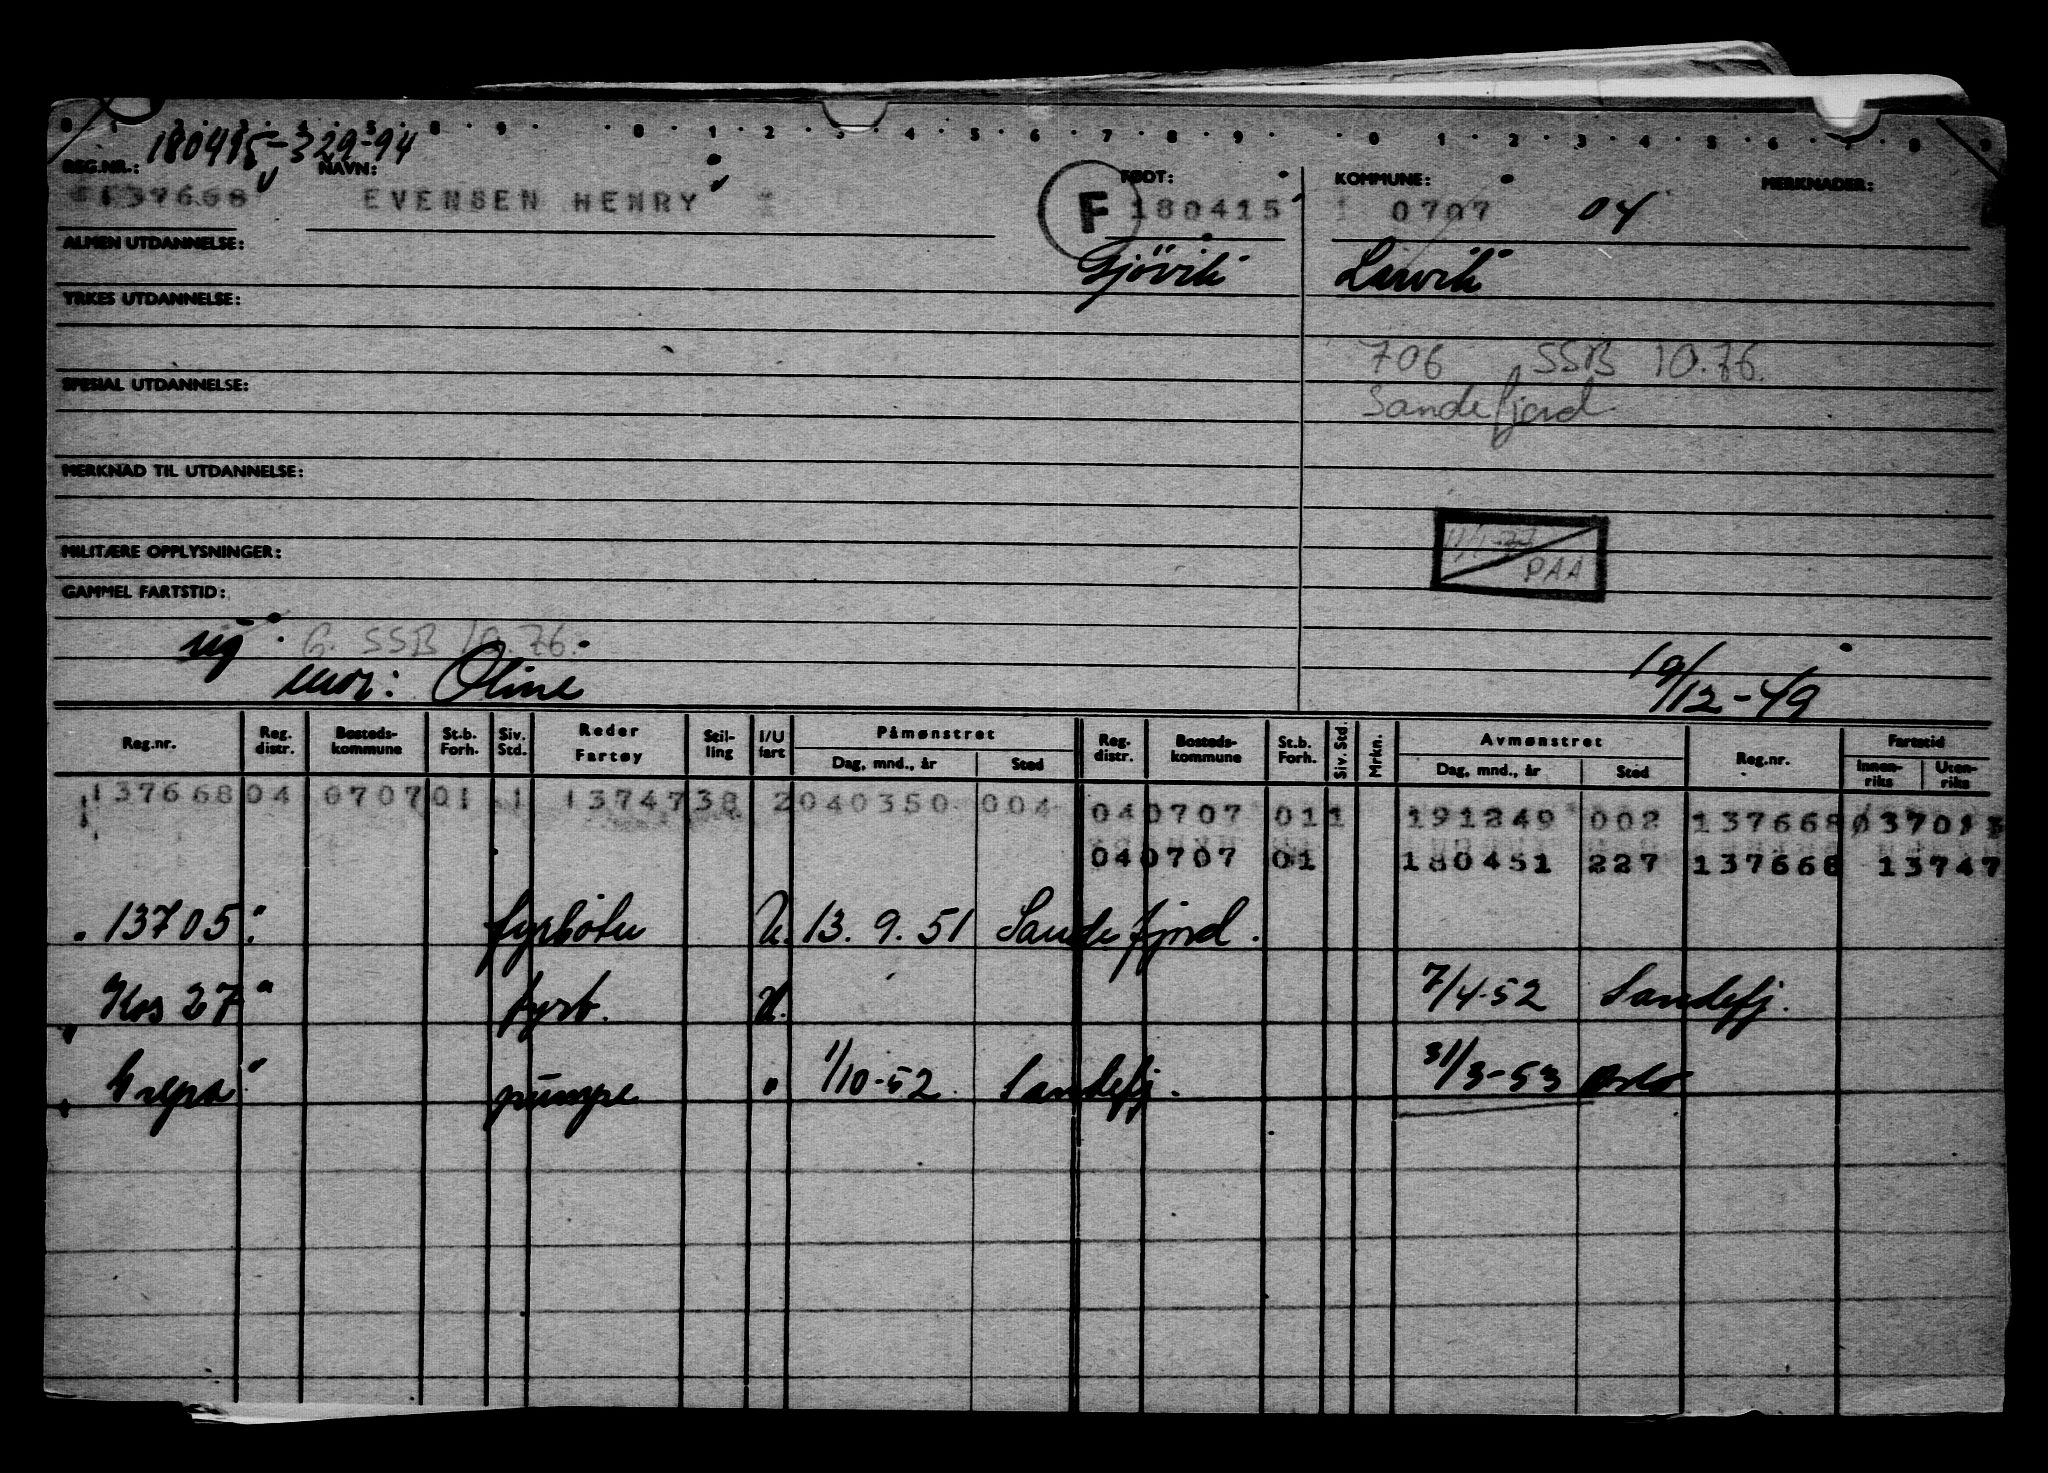 180415-329-94
REG.NR.: NAVN: FØDT: KOMMUNE: MERKNADER:
137668 EVENSEN HENRY F 180415 0707 04
ALMEN UTDANNELSE: Gjövik Larvik
YRKES UTDANNELSE:
706 SSB 10.76.
SPESIAL UTDANNELSE: Sandefjord
MERKNAD TIL UTDANNELSE:
MILITÆRE OPPLYSNINGER:
PAA
GAMMEL FARTSTID:
sig. G. SSB 10.76.
mor: Oline 19/12-49
Reg.nr. Reg. distr. Bosteds-kommune St.b. Forh. Siv. Std. Reder Fartøy Stil-ling I/U fart Påmønstret Dag, mnd., år Sted Reg. distr. Bosteds-kommune St.b. Forh. Siv. Std. Mrkn. Avmønstret Dag, mnd., år Sted Reg.nr. Fartstid Innen-riks Uten-riks
137668 04 0707 01 1 13747 38 2 040350 004 04 0707 01 1 191249 002 137668
04 0707 01 180451 227 137668 13747
13705 fyrböter U. 13. 9. 51 Sandefjord.
Kos 27 " fyrb. U. 7/4-52 Sandefj.
pumpe " 1/10-52 Sandefj. 31/3-53 Oslo